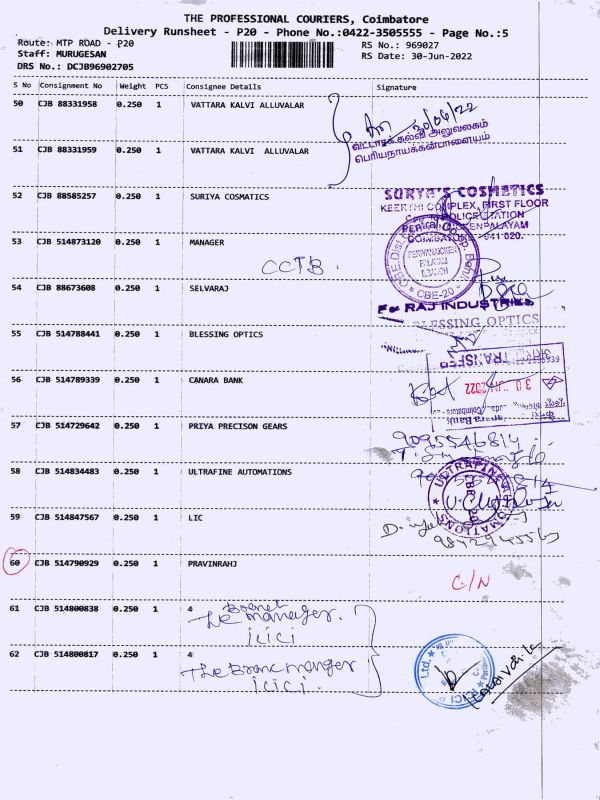 THE PROFESSIONAL COURIERS, Coimbatore
Delivery Runsheet - P20 - Phone No.:0422-3505555 - Page No.:5
Route: MTP ROAD - P20 RS No.: 969027
Staff: MURUGESAN RS Date: 30-Jun-2022
DRS No.: DCJB96902705
S No Consignment No Weight PCS Consignee Details Signature
50 CJB 88331958 0.250 1 VATTARA KALVI ALLUVALAR
30/06/22
வட்டாரக்கல்வி அலுவலகம்
பெரியநாயக்கன்பாளையம்
51 CJB 88331959 0.250 1 VATTARA KALVI ALLUVALAR
52 CJB 88585257 0.250 1 SURIYA COSMATICS
SURYA'S COSMETICS
KEERTHI COMPLEX, FIRST FLOOR
POLICE STATION
COIMBATORE - 641 020.
53 CJB 514873120 0.250 1 MANAGER
CCTB.
PERIYANAICKEN
PALAYAM
BRANCH
CBE-20
54 CJB 88673608 0.250 1 SELVARAJ
For RAJ INDUSTRIES
55 CJB 514788441 0.250 1 BLESSING OPTICS
BLESSING OPTICS
TRANSFER
56 CJB 514789339 0.250 1 CANARA BANK
30 JUN 2022
Canara Bank
57 CJB 514729642 0.250 1 PRIYA PRECISON GEARS
9095546814
58 CJB 514834483 0.250 1 ULTRAFINE AUTOMATIONS
ULTRAFINE AUTOMATIONS
CBE-20
59 CJB 514847567 0.250 1 LIC
60 CJB 514790929 0.250 1 PRAVINRAHJ
C/N
61 CJB 514800838 0.250 1 4
The manager.
icici
62 CJB 514800817 0.250 1 4
The Branc manger
icici.
ICICI
Ltd.